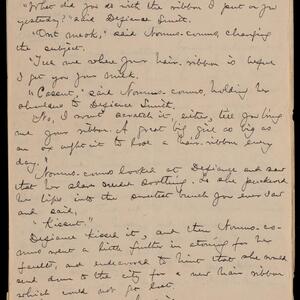 "What did you do with the ribbon I put on you
yesterday?" said Defiance Smith.
"Ont meok," said Nomus-como, changing
the subject.
"Tell me where your hair ribbon is before
I get you your milk.
"Cosent," said Nomus-como, holding her
to Defiance Smith.
"No, I won't scratch it, either, till you bring
me your ribbon. A great big girl so big as
you ought to have a hair ribbon every
day."
Nomus-como looked at Defiance and saw
that her needed soothing. So she puckered
her lips into the sweetest you ever saw
and said,
"Kissent."
Defiance kissed it, and then Nomus-co-
mo went a little further in atoning for her
faults, and endeavored to hint that she would
send down to the city for a new hair ribbon
which could not go lost.